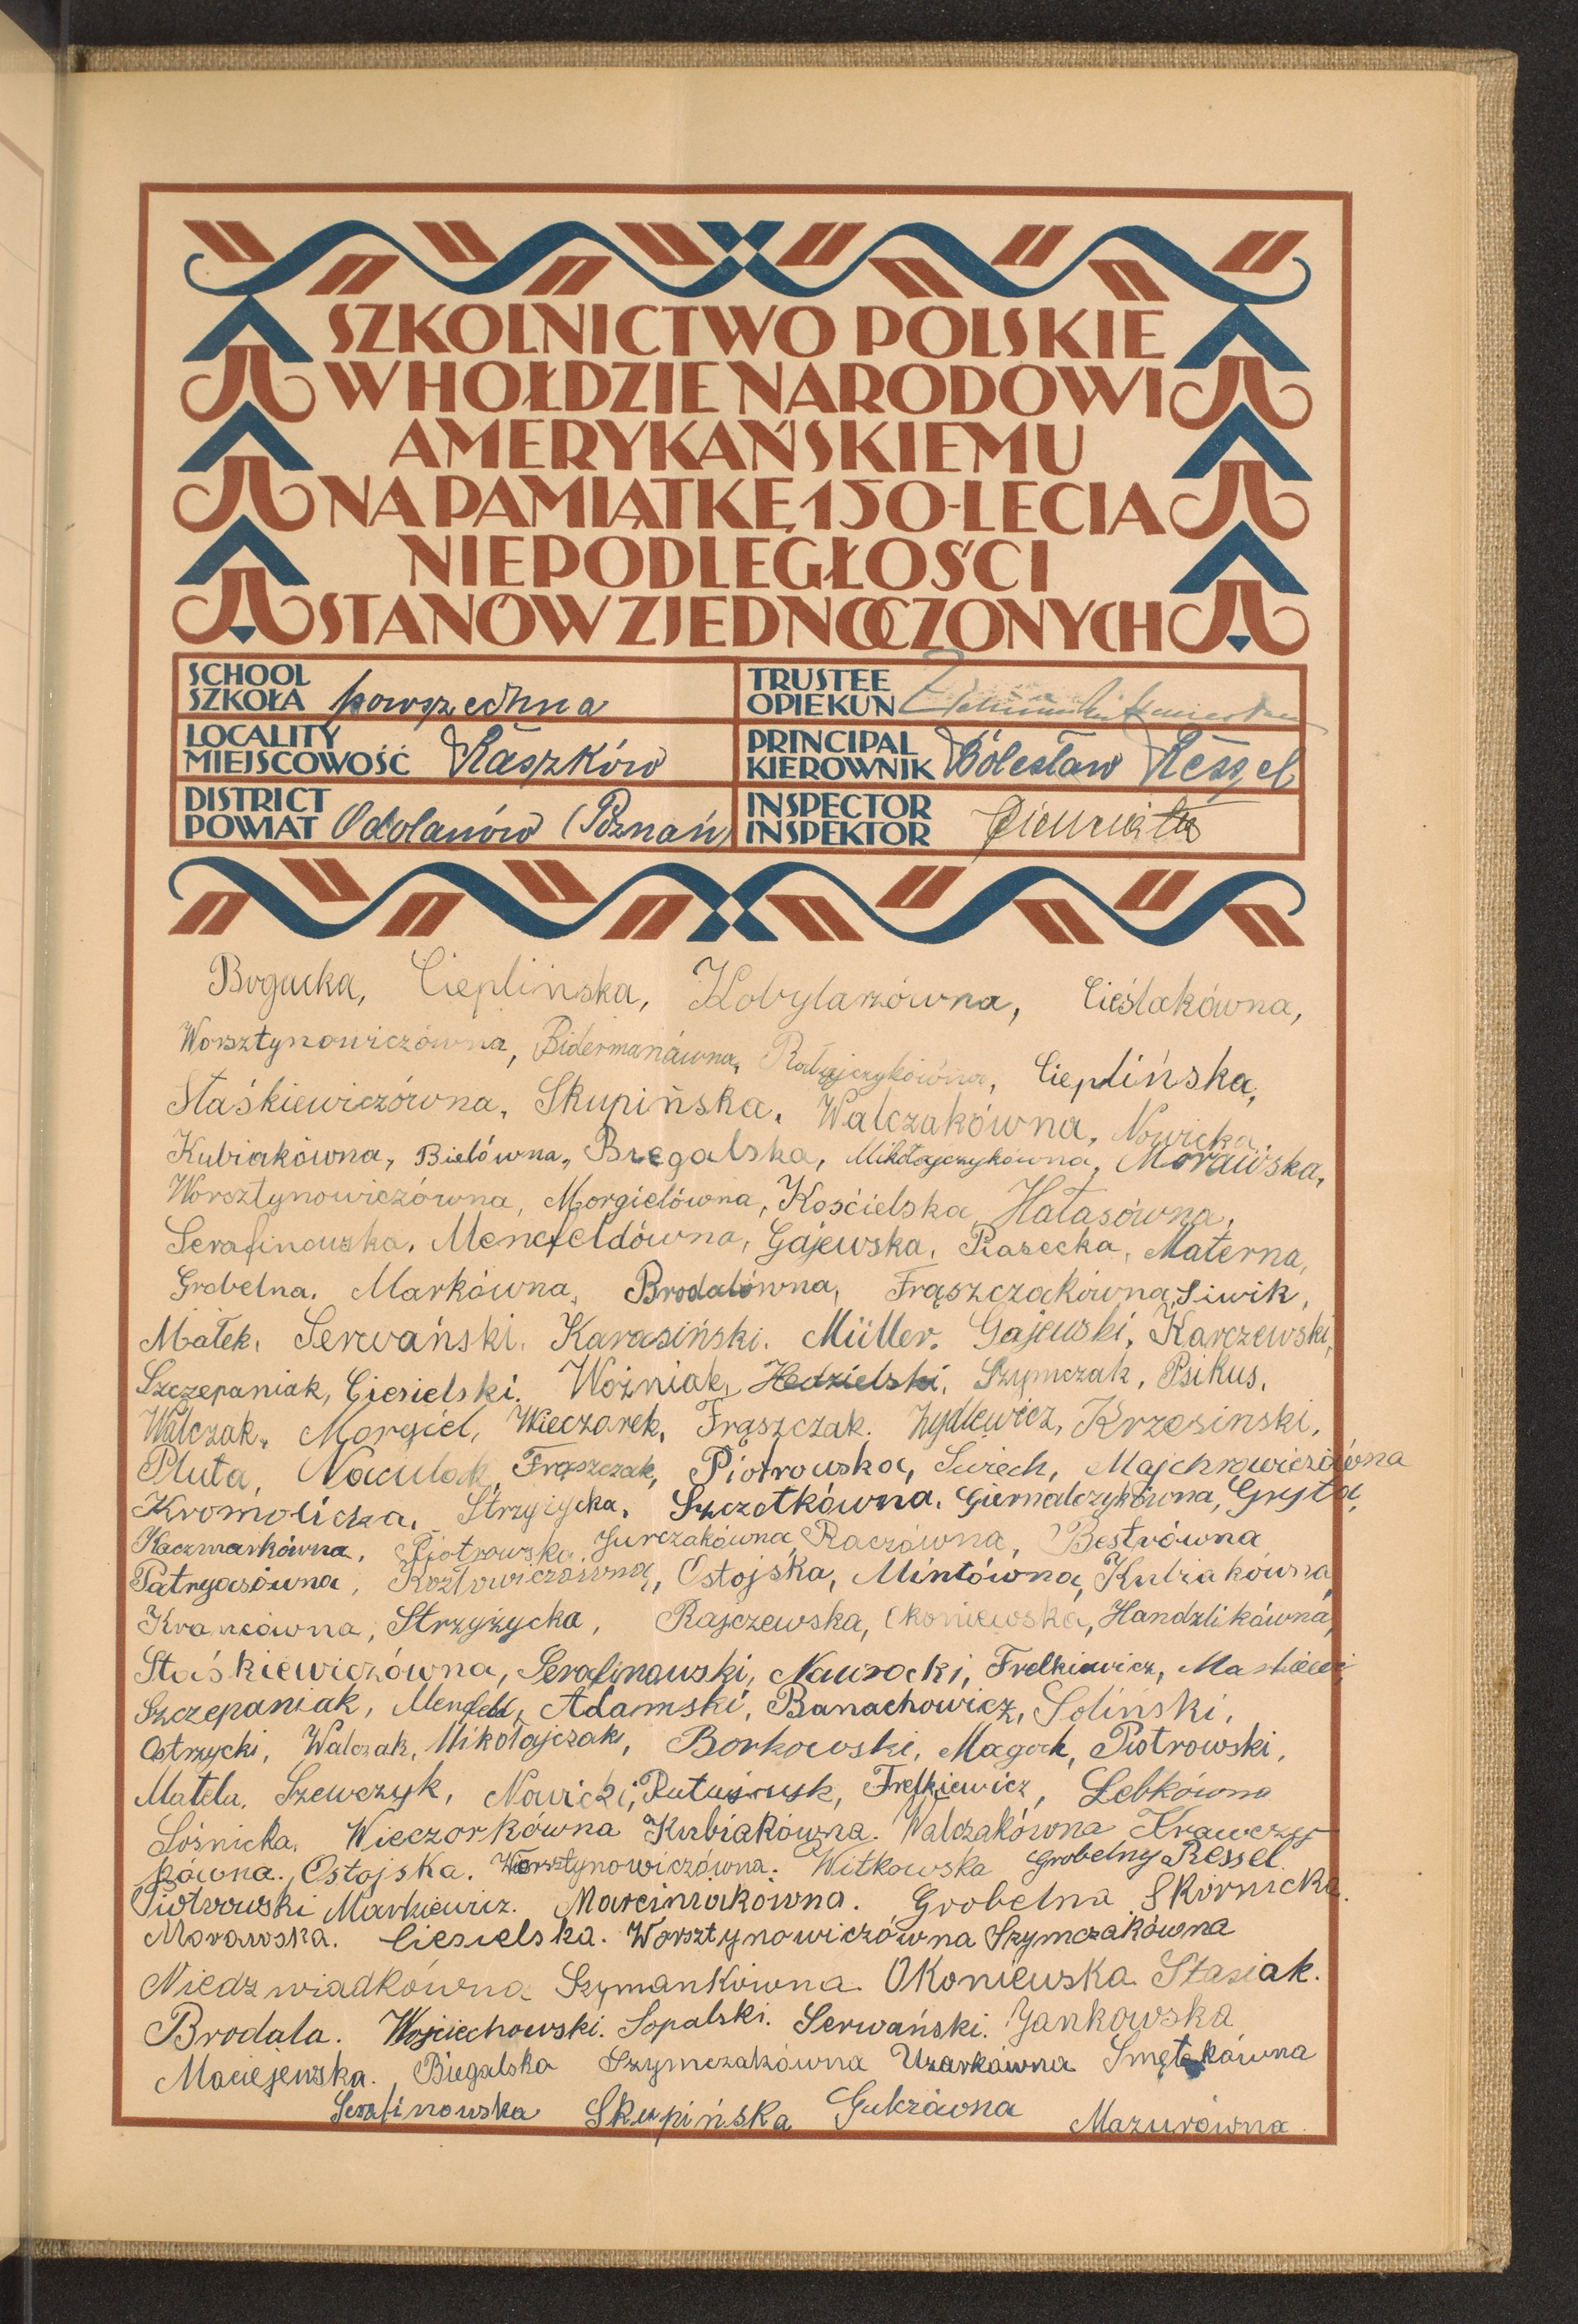 SZKOLNICTWO POLSKIE
W HOŁDZIE NARODOWI
AMERYKAŃSKIEMU
NA PAMIĄTKĘ 150-LECIA
NIEPODLEGŁOŚCI
STANÓW ZJEDNOCZONYCH
SCHOOL
SZKOŁA powszechna
TRUSTEE
OPIEKUN
LOCALITY
MIEJSCOWOŚĆ Raszków
PRINCIPAL
KIEROWNIK Bolesław Ressel
DISTRICT
POWIAT Odolanów (Poznań)
INSPECTOR
INSPEKTOR
Bogacka, Cieplińska, Kobylarzówna, Cieślakówna,
Worsztynowiczówna, Bidermanówna, Ratajczykówna, Cieplińska,
Staśkiewiczówna, Skupińska, Walczakówna, Nowicka,
Kubiakówna, Bielówna, Bregalska, Mikołajczykówna, Morawska,
Worsztynowiczówna, Morgielówna, Kościelska, Hałasówna,
Serafinowska, Menefeldówna, Gajewska, Piasecka, Materna,
Grobelna, Markówna, Brodalówna, Frąszczakówna, Siwik,
Małek, Serwański, Karasiński, Müller, Gajewski, Karczewski,
Szczepaniak, Ciesielski, Woźniak, Szymczak, Psikus,
Walczak, Morgiel, Wieczorek, Frąszczak, Zydlewicz, Krzesinski,
Pluta, Frąszczak, Piotrowska, Swiech, Majchrowiczówna
Kromolicka, Strzyżycka, Szczotkówna, Giernalczykówna, Gryska,
Kaczmarkówna, Piotrowska, Jurczakówna, Raczówna, Bestrówna
Patryasówna, Kozłowiczówna, Ostojska, Mintówna, Kubiakówna,
Krancówna, Strzyżycka, Rajczewska, Okoniewska, Handzlikówna,
Staśkiewiczówna, Serafinowski, Nawrocki, Frelkiewicz,
Szczepaniak, Menfeld, Adamski, Banachowicz, Soliński,
Ostrzycki, Walczak, Mikołajczak, Borkowski, Magoch, Piotrowski,
Matela, Szewczyk, Nowicki, Frelkiewicz, Lebkówna
Lośnicka, Wieczorkówna Kubiakówna. Walczakówna Krawczy
kówna. Ostojska. Worsztynowiczówna. Witkowska Grobelny Ressel.
Piotrowski Markiewicz. Marciniakówna. Grobelna Skórnicka.
Morawska. Ciesielska. Worsztynowiczówna Szymczakówna
Niedzwiadkówna Szymankówna. Okoniewska Stasiak.
Brodala. Wojciechowski. Sopalski. Serwański. Jankowska
Maciejewska. Biegalska Szymczakówna Uzarkówna Smętkówna
Serafinowska Skupińska Gulczówna Mazurówna.